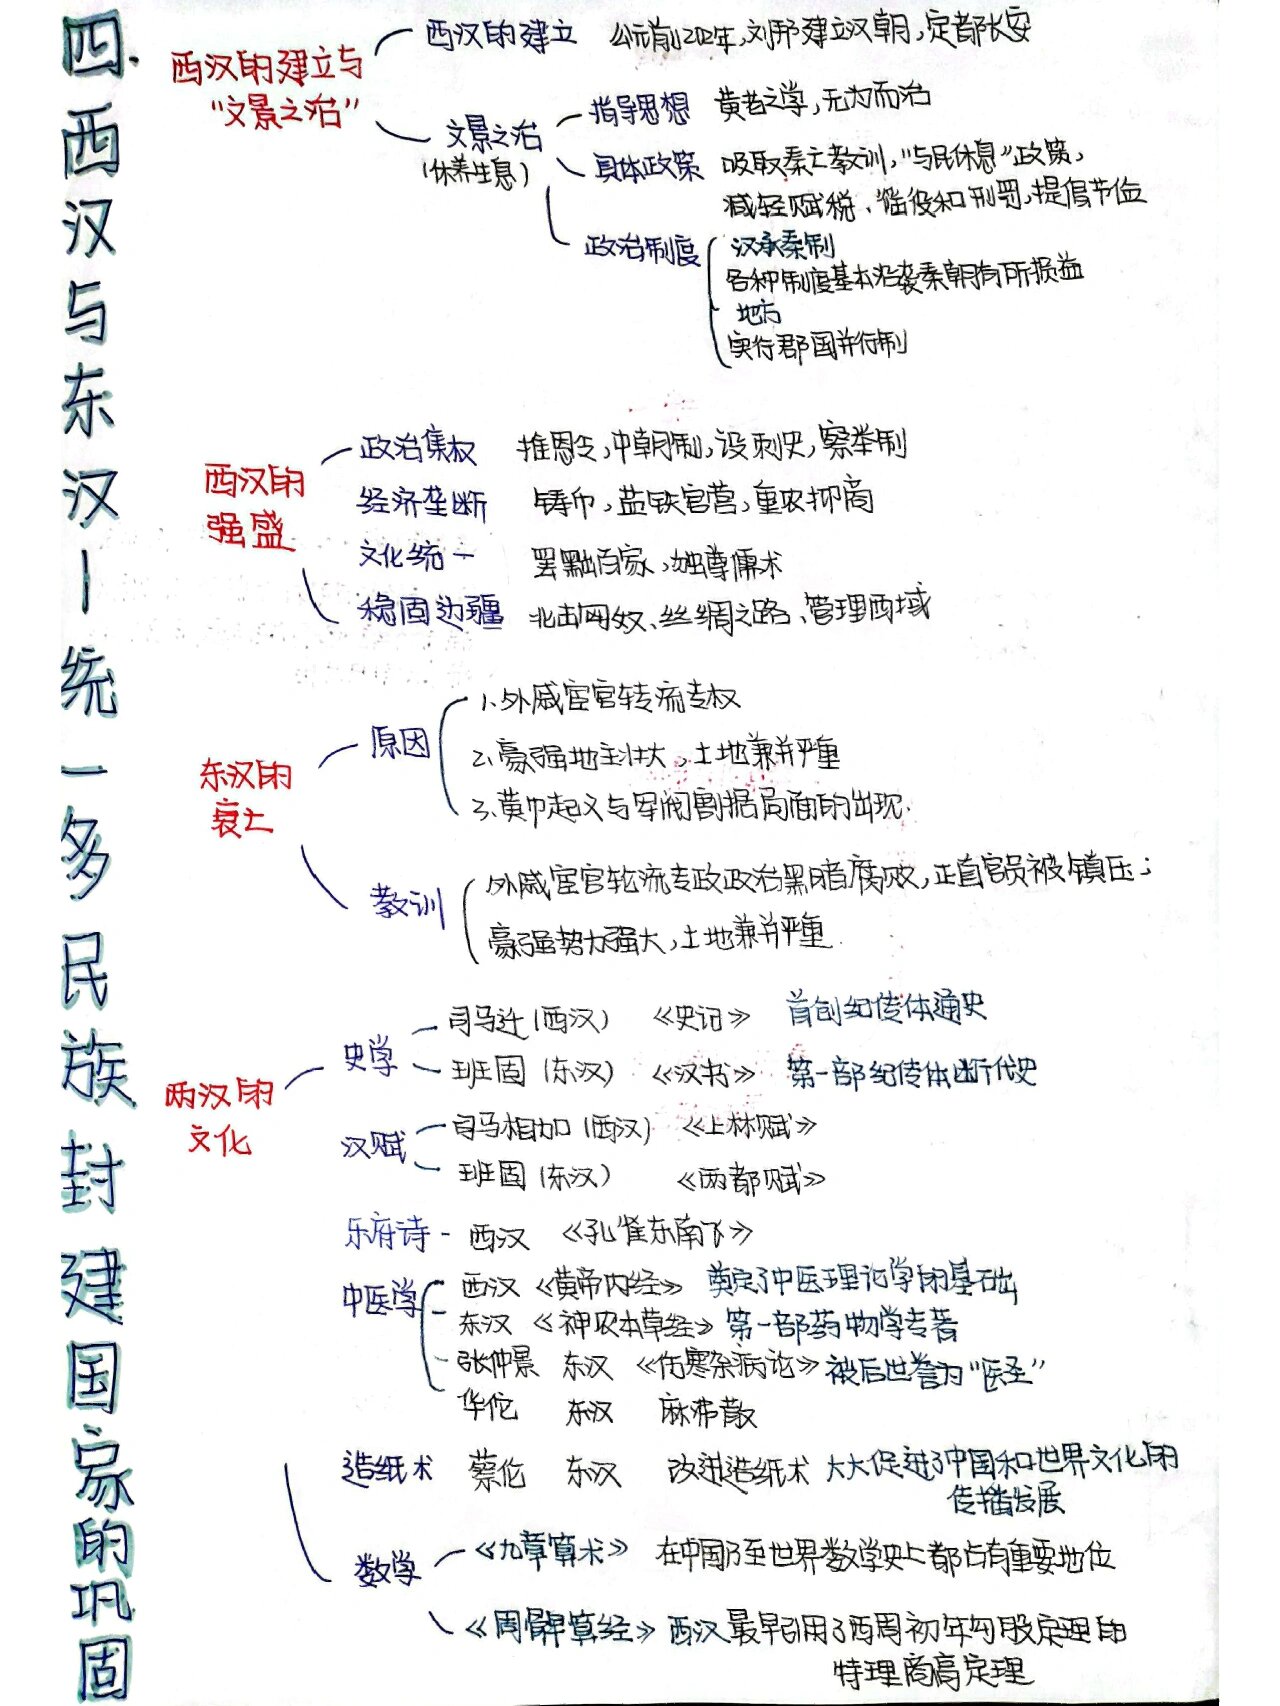 四、西汉与东汉—统一多民族封建国家的巩固
西汉的建立与
"文景之治"
西汉的建立 公元前202年,刘邦建立汉朝,定都长安
文景之治
(休养生息)
指导思想 黄老之学,无为而治
具体政策 吸取秦亡教训,"与民休息"政策,
减轻赋税、徭役和刑罚,提倡节俭
政治制度 汉承秦制
各种制度基本沿袭秦朝有所损益
地方
实行郡国并行制
西汉的
强盛
政治集权 推恩令,中朝制,设刺史,察举制
经济垄断 铸币,盐铁官营,重农抑商
文化统一 罢黜百家,独尊儒术
稳固边疆 北击匈奴、丝绸之路、管理西域
东汉的
衰亡
原因
1.外戚宦官转流专权
2.豪强地主壮大,土地兼并严重
3.黄巾起义与军阀割据局面的出现.
教训
外戚宦官轮流专政政治黑暗腐败,正直官员被镇压;
豪强势力强大,土地兼并严重
两汉的
文化
史学
司马迁(西汉) 《史记》 首创纪传体通史
班固(东汉) 《汉书》 第一部纪传体断代史
汉赋
司马相如(西汉) 《上林赋》
班固(东汉) 《两都赋》
乐府诗 - 西汉 《孔雀东南飞》
中医学
西汉《黄帝内经》 奠定了中医理论学的基础
东汉《神农本草经》第一部药物学专著
张仲景 东汉 《伤寒杂病论》被后世誉为"医圣"
华佗 东汉 麻沸散
造纸术 蔡伦 东汉 改进造纸术 大大促进了中国和世界文化的
传播发展
数学
《九章算术》 在中国乃至世界数学史上都占有重要地位
《周髀算经》西汉最早引用了西周初年勾股定理的
特理商高定理